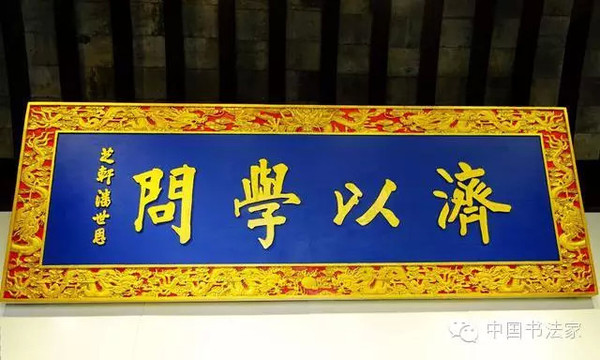 濟以學問
芝軒潘世恩
中国书法家